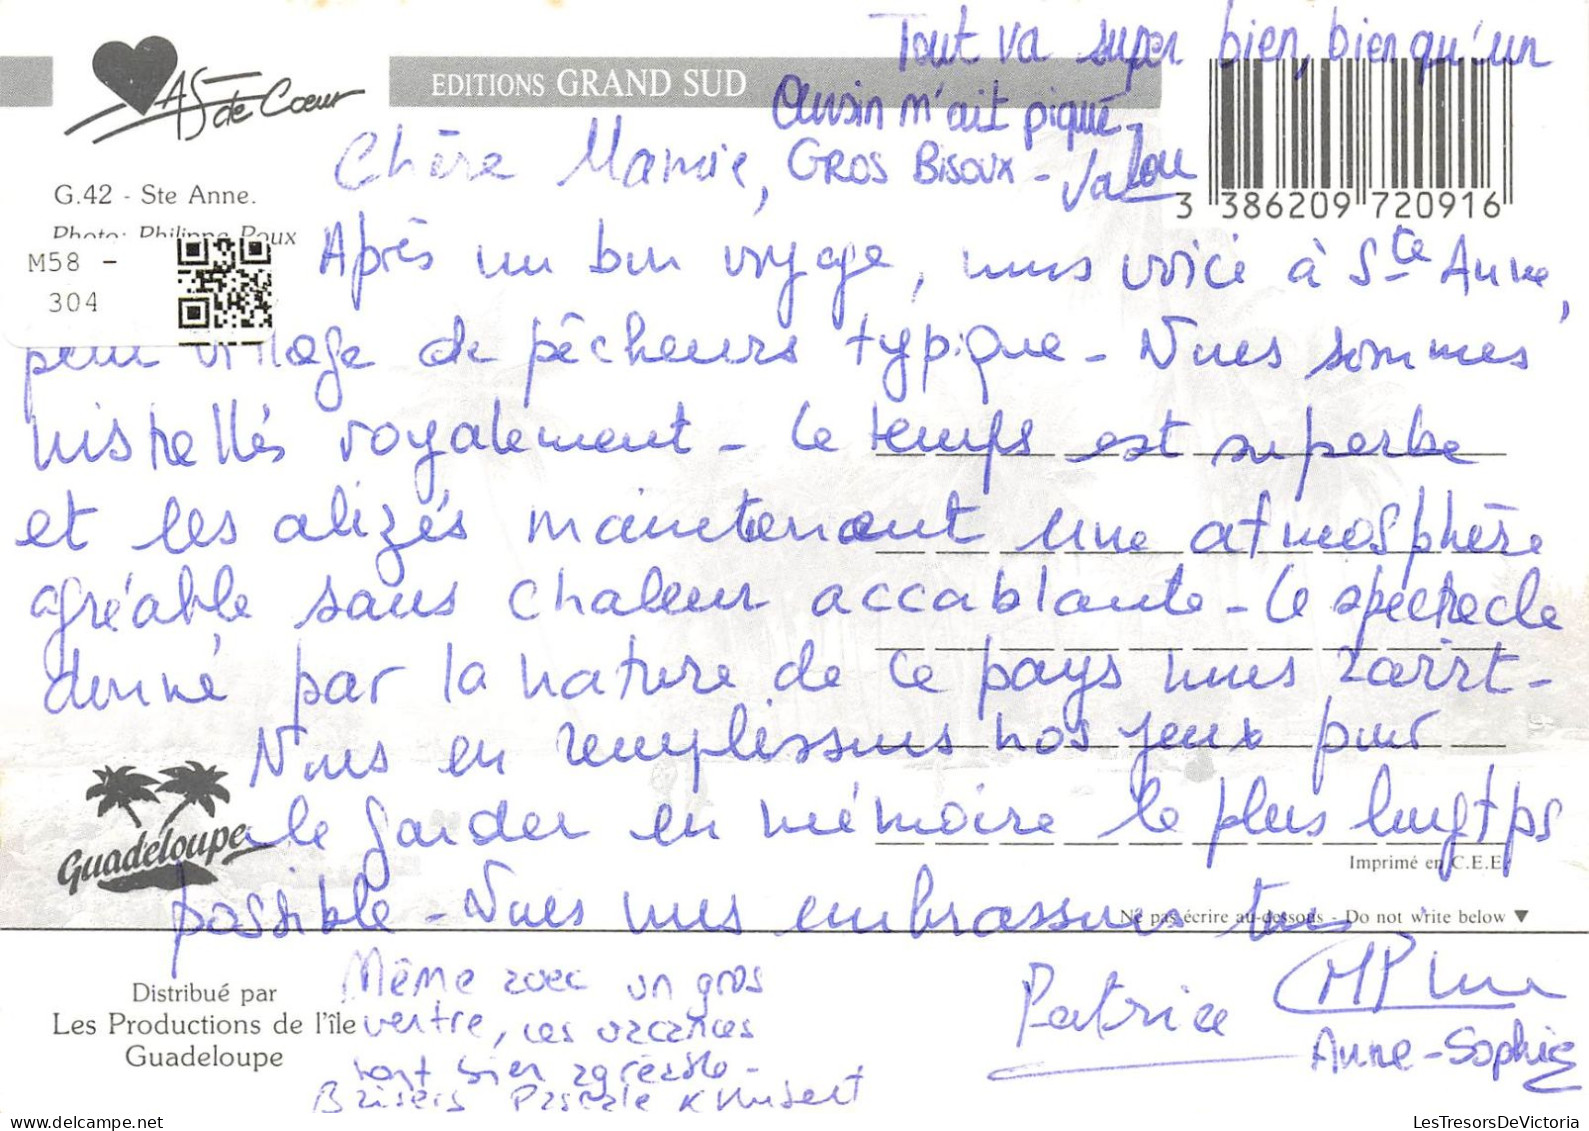 Tout va super bien, bien qu'un
oursin m'ait piqué.
GROS BISOUX - Valou
AS de Coeur
EDITIONS GRAND SUD
3 386209 720916
G.42 - Ste Anne.
Photo: Philippe Poux
M58 -
304
Chère Mamie,
Après un bon voyage, nous voici à Ste Anne,
petit village de pêcheurs typique - Nous sommes
installés royalement - Le temps est superbe
et les alizés maintenant une atmosphère
agréable sans chaleur accablante - Le spectacle
donné par la nature de ce pays nous ravit -
Nous en remplissons nos yeux pour
le garder en mémoire le plus longtps
possible - Nous vous embrassons tous
Guadeloupe
Imprimé en C.E.E.
Ne pas écrire au-dessous - Do not write below ▼
Patrice
Anne-Sophie
Même avec un gros
ventre, ces vacances
sont bien agréable -
Baisers Pascale & Hubert
Distribué par
Les Productions de l'île
Guadeloupe
LesTresorsDeVictoria